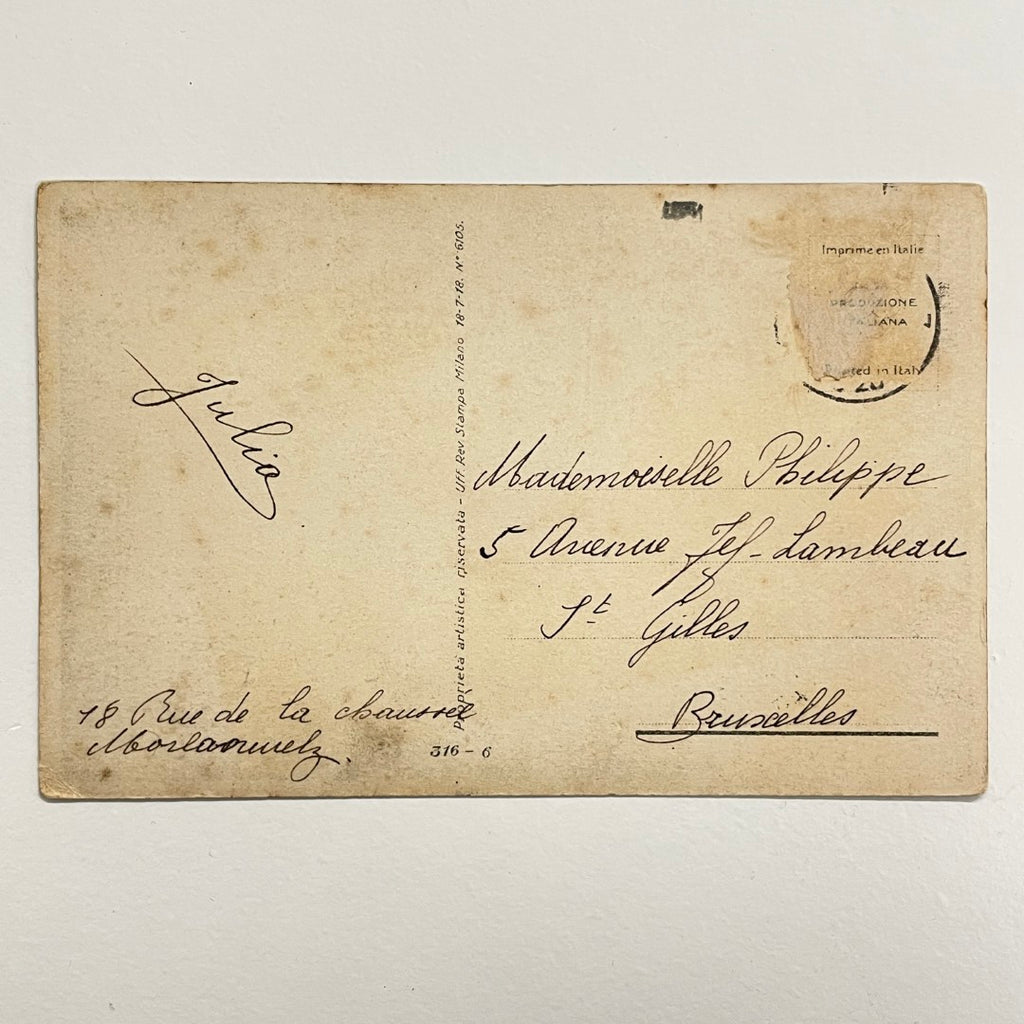 Julia
18 Rue de la chaussée
Morlanwelz.
Proprietà artistica riservata - Uff. Rev. Stampa Milano 18-7-18. N° 6105.
316 - 6
Imprimé en Italie
PRODUZIONE
ITALIANA
Printed in Italy
Mademoiselle Philippe
5 Avenue Jef-Lambeau
St Gilles
Bruxelles